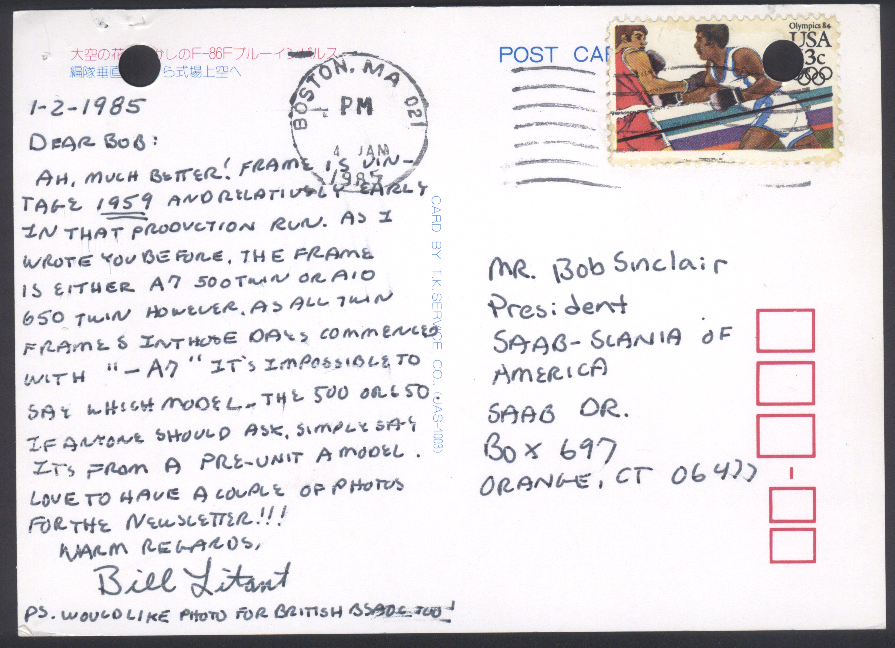 大空の花 かしのF-86Fブルーインパルス
編隊垂直 ら式場上空へ
POST CAR
Olympics 84
USA
3c
BOSTON, MA 021
PM
4 JAN
1985
1-2-1985
DEAR BOB:
AH, MUCH BETTER! FRAME IS VIN-
TAGE 1959 AND RELATIVELY EARLY
IN THAT PRODUCTION RUN. AS I
WROTE YOU BEFORE, THE FRAME
IS EITHER A7 500 TWIN OR A10
650 TWIN HOWEVER, AS ALL TWIN
FRAMES IN THOSE DAYS COMMENCED
WITH "-A7" IT'S IMPOSSIBLE TO
SAY WHICH MODEL - THE 500 OR 650
IF ANYONE SHOULD ASK, SIMPLY SAY
IT'S FROM A PRE-UNIT A MODEL.
LOVE TO HAVE A COUPLE OF PHOTOS
FOR THE NEWSLETTER!!!
WARM REGARDS,
Bill Litant
PS. WOULD LIKE PHOTO FOR BRITISH BSAOC TOO!
CARD BY T.K.SERVICE CO. (JAS-1003)
MR. Bob Sinclair
President
SAAB-SCANIA OF
AMERICA
SAAB DR.
BOX 697
ORANGE, CT 06477